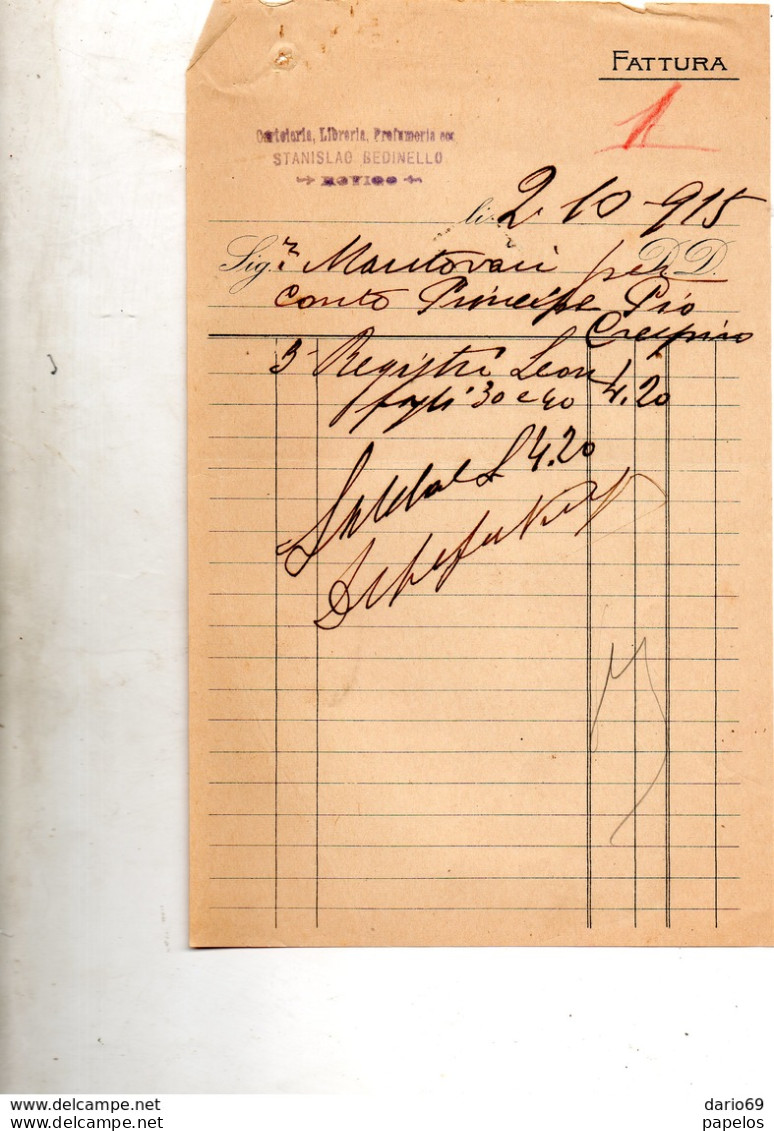 FATTURA
1
Cartoleria, Libreria, Profumeria ecc.
STANISLAO BEDINELLO
ROVIGO
li 2 10 915
Sig.r Mantovani per D D.
conto Principe Pio
Crespino
3 Registri Leon
fogli 30 e 40 4.20
Saldai L 4.20
www.delcampe.net
dario69
papelos